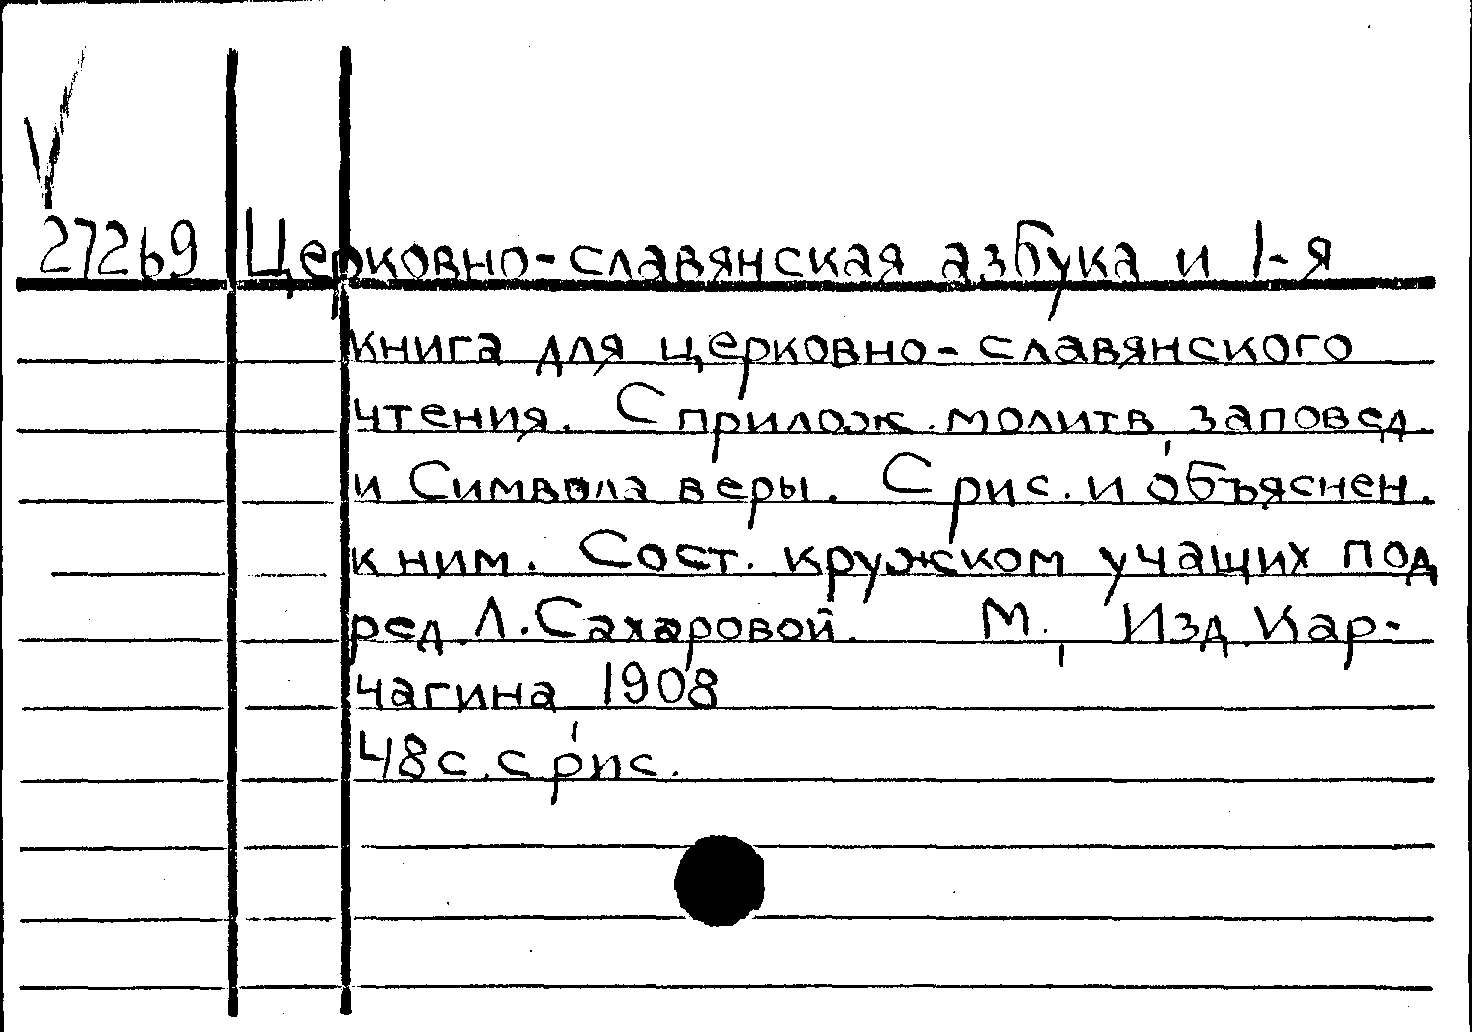 27269 Церковно-славянская азбука и 1-я
книга для церковно-славянского
чтения. С прилож. молитв, заповед.
и Символа веры. С рис. и объяснен.
к ним. Сост. кружком учащих под
ред. Л. Сахаровой. М., Изд. Кар-
чагина, 1908
48 с. с рис.